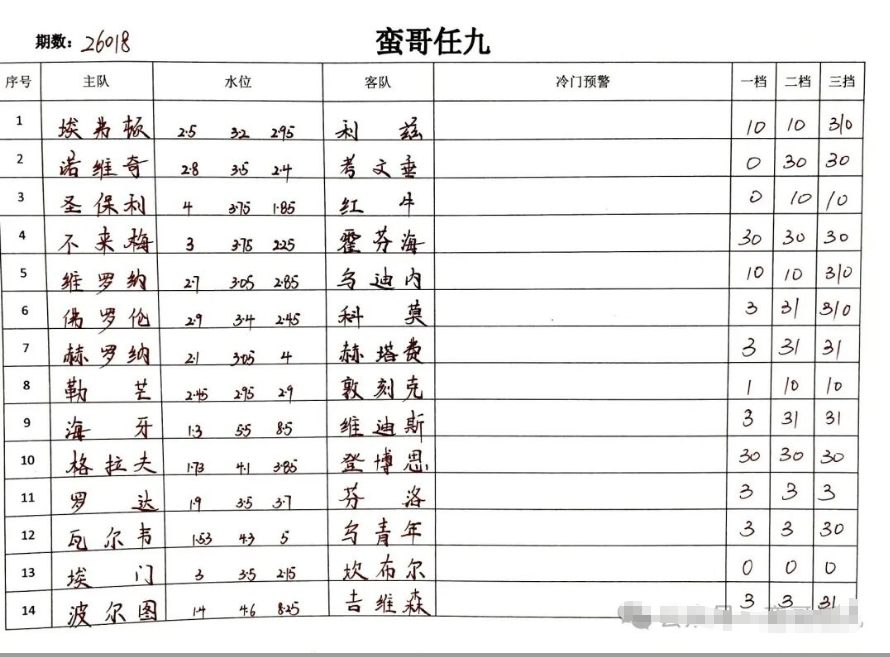 期数: 26018 蛮哥任九
序号 主队 水位 客队 冷门预警 一档 二档 三挡
1 埃弗顿 2.5 3.2 2.95 利兹 10 10 310
2 诺维奇 2.8 3.5 2.4 考文垂 0 30 30
3 圣保利 4 3.75 1.85 红牛 0 10 10
4 不来梅 3 3.75 2.25 霍芬海 30 30 30
5 维罗纳 2.7 3.05 2.85 乌迪内 10 10 310
6 佛罗伦 2.9 3.4 2.45 科莫 3 31 310
7 赫罗纳 2.1 3.05 4 赫塔费 3 31 31
8 勒芒 2.45 2.95 2.9 敦刻克 1 10 10
9 海牙 1.3 5.5 8.5 维迪斯 3 31 31
10 格拉夫 1.73 4.1 3.85 登博思 30 30 30
11 罗达 1.9 3.5 3.7 芬洛 3 3 3
12 瓦尔韦 1.53 4.3 5 乌青年 3 3 30
13 埃门 3 3.5 2.15 坎布尔 0 0 0
14 波尔图 1.4 4.6 8.25 吉维森 3 3 31